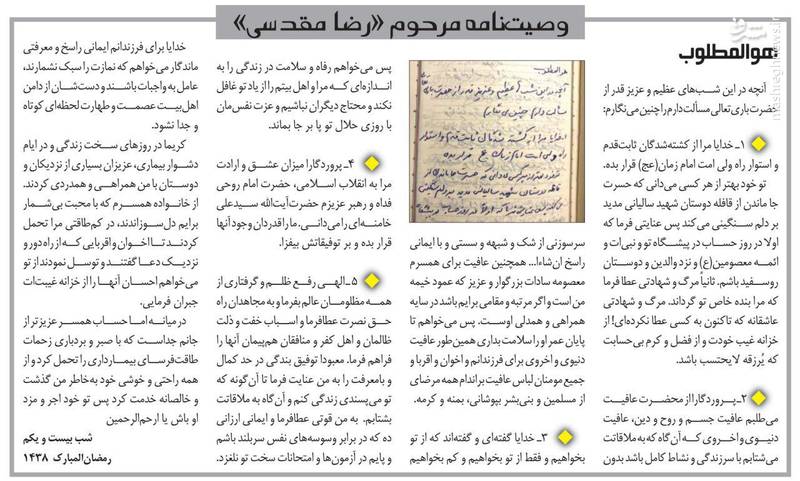 وصیت‌نامه مرحوم «رضا مقدسی»
هوالمطلوب
آنچه در این شب‌های عظیم و عزیز قدر از
حضرت باری‌تعالی مسألت دارم را چنین می‌نگارم:
۱ـ خدایا مرا از کشته‌شدگان ثابت‌قدم
و استوار راه ولی امت امام زمان(عج) قرار بده.
تو خود بهتر از هر کسی می‌دانی که حسرت
جا ماندن از قافله دوستان شهید سالیانی مدید
بر دلم سنگینی می‌کند پس عنایتی فرما که
اولا در روز حساب در پیشگاه تو و نبی‌ات و
ائمه معصومین(ع) و نزد والدین و دوستان
روسفید باشم. ثانیاً مرگ و شهادتی عطا فرما
که مرا بنده خاص تو گرداند. مرگ و شهادتی
عاشقانه که تاکنون به کسی عطا نکرده‌ای! از
خزانه غیب خودت و از فضل و کرم بی‌حسابت
که یُرزقه لایحتسب باشد.
۲ـ پروردگارا از محضرت عافیت
می‌طلبم عافیت جسم و روح و دین، عافیت
دنیوی و اخروی که آن‌گاه که به ملاقاتت
می‌شتابم با سرزندگی و نشاط کامل باشد بدون
سرسوزنی از شک و شبهه و سستی و با ایمانی
راسخ ان‌شاءا... همچنین عافیت برای همسرم
معصومه سادات بزرگوار و عزیز که عمود خیمه
من است و اگر مرتبه و مقامی برایم باشد در سایه
همراهی و همدلی اوست. پس می‌خواهم تا
پایان عمر او را سلامت بداری همین‌طور عافیت
دنیوی و اخروی برای فرزندانم و اخوان و اقربا و
جمیع مومنان لباس عافیت بر اندام همه مرضای
از مسلمین و بنی‌بشر بپوشانی، بمنه و کرمه.
۳ـ خدایا گفته‌ای و گفته‌اند که از تو
بخواهیم و فقط از تو بخواهیم و کم بخواهیم
پس می‌خواهم رفاه و سلامت در زندگی را به
اندازه‌ای که مرا و اهل بیتم را از یاد تو غافل
نکند و محتاج دیگران نباشیم و عزت نفس‌مان
با روزی حلال تو پا بر جا بماند.
۴ـ پروردگارا میزان عشق و ارادت
مرا به انقلاب اسلامی، حضرت امام روحی
فداه و رهبر عزیزم حضرت آیت‌الله سیدعلی
خامنه‌ای را می‌دانی، ما را قدردان وجود آنها
قرار بده و بر توفیقاتش بیفزا.
۵ـ الهی رفع ظلم و گرفتاری از
همه مظلومان عالم بفرما و به مجاهدان راه
حق نصرت عطا فرما و اسباب خفت و ذلت
ظالمان و اهل کفر و منافقان هم‌پیمان آنها را
فراهم فرما. معبودا توفیق بندگی در حد کمال
و با معرفت را به من عنایت فرما تا آن‌گونه که
تو می‌پسندی زندگی کنم و آن‌گاه به ملاقاتت
بشتابم. به من قوتی عطا فرما و ایمانی ارزانی
ده که در برابر وسوسه‌های نفس سربلند باشم
و پایم در آزمون‌ها و امتحانات سخت تو نلغزد.
خدایا برای فرزندانم ایمانی راسخ و معرفتی
ماندگار می‌خواهم که نمازت را سبک نشمارند،
عامل به واجبات باشند و دست‌شان از دامن
اهل‌بیت عصمت و طهارت لحظه‌ای کوتاه
و جدا نشود.
کریما در روزهای سخت زندگی و در ایام
دشوار بیماری، عزیزان بسیاری از نزدیکان و
دوستان با من همراهی و همدردی کردند.
از خانواده همسرم که با محبت بی‌شمار
برایم دل سوزاندند، در کم‌طاقتی مرا تحمل
کردند تا اخوان و اقربایی که از راه دور و
نزدیک دعا گفتند و توسل نمودند از تو
می‌خواهم احسان آنها را از خزانه غیب‌ات
جبران فرمایی.
در میانه اما حساب همسر عزیزتر از
جانم جداست که با صبر و بردباری زحمات
طاقت‌فرسای بیمارداری را تحمل کرد و از
همه راحتی و خوشی خود به‌خاطر من گذشت
و خالصانه خدمت کرد پس تو خود اجر و مزد
او باش یا ارحم‌الراحمین
شب بیست و یکم
رمضان‌المبارک ۱۴۳۸